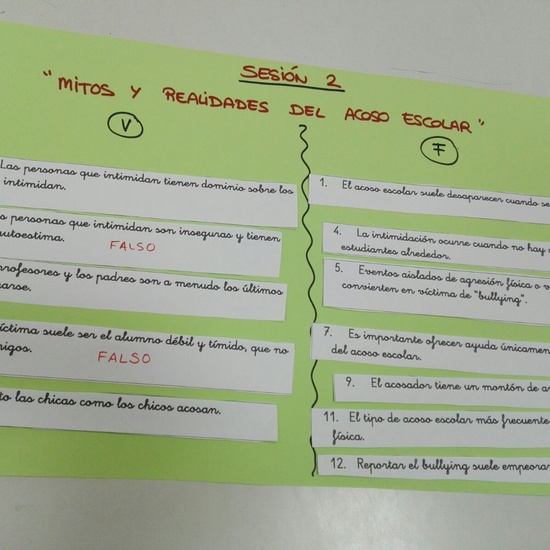 SESIÓN 2
"MITOS Y REALIDADES DEL ACOSO ESCOLAR"
V
Las personas que intimidan tienen dominio sobre los
intimidan.
personas que intimidan son inseguras y tienen
autoestima. FALSO
profesores y los padres son a menudo los últimos
víctima suele ser el alumno débil y tímido, que no
FALSO
las chicas como los chicos acosan.
F
1. El acoso escolar suele desaparecer cuando se
4. La intimidación ocurre cuando no hay
estudiantes alrededor.
5. Eventos aislados de agresión física o
convierten en víctima de "bullying".
7. Es importante ofrecer ayuda
del acoso escolar.
9. El acosador tiene un montón de
11. El tipo de acoso escolar más frecuente
física.
12. Reportar el bullying suele